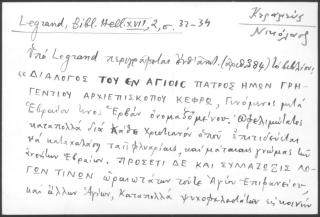 Legrand, Bibl. Hell. XVII, 2, σ. 32-34
Κεραμεὺς
Νικόλαος
Ὑπὸ Legrand περιγράφεται (ἀριθ. 384) τὸ βιβλίον:
« ΔΙΑΛΟΓΟΣ ΤΟΥ ΕΝ ΑΓΙΟΙΣ ΠΑΤΡΟΣ ΗΜΩΝ ΓΡΗ-
ΓΕΝΤΙΟΥ ΑΡΧΙΕΠΙΣΚΟΠΟΥ ΚΕΦΡΩ, Γινόμενος μετὰ
Ἑβραίου τινος Ἑρβὰν ὀνομαζόμενου. Ὠφελιμώτατος
καταπολλὰ διὰ κάθε χριστιανὸν ὁποῦ ἐπιτιδεύεται
νὰ καταχαλάσῃ ταῖς φλυαρίαις, καὶ ματαίαις γνώμαις τῶν
ἀνοήτων Ἑβραίων. ΠΡΟΣΕΤΙ ΔΕ ΚΑΙ ΣΥΝΑΞΙΣ ΛΟ-
ΓΩΝ ΤΙΝΩΝ ὡραιωτάτων τοῦτε Ἁγίου Ἐπιφανείου,
καὶ ἄλλων Ἁγίων, καταπολλὰ ψυχοφελεστάτων εἰς κοινὴν